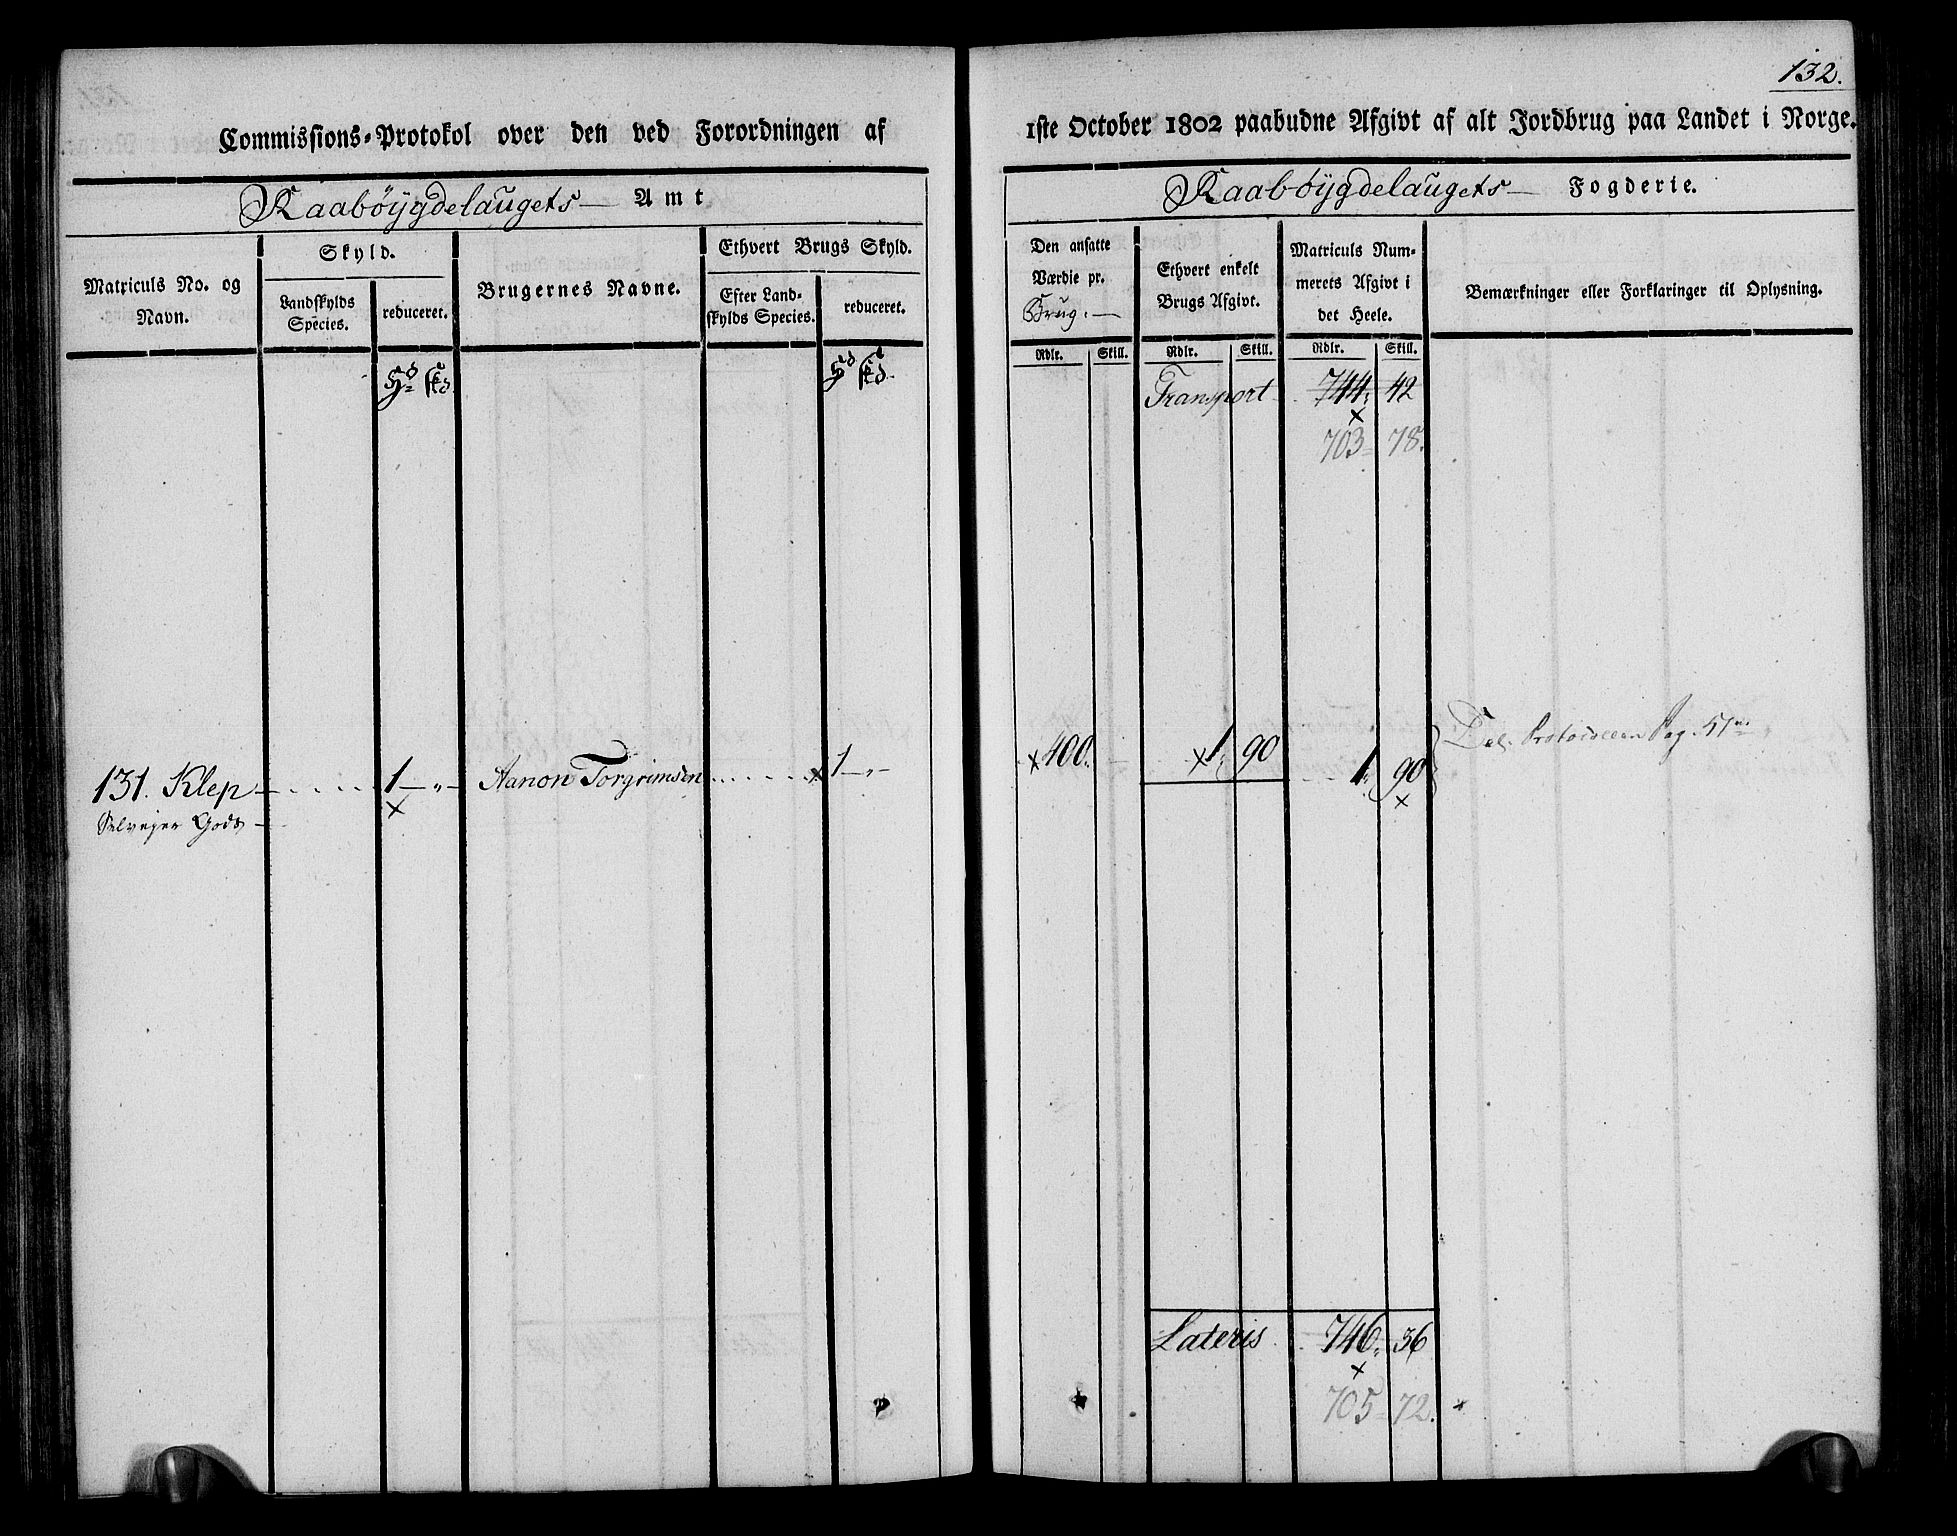 132.
Commissions-Protokol over den ved Forordningen af
1ste October 1802 paabudne Afgivt af alt Jordbrug paa Landet i Norge.
Raabøygdelaugets Amt
Raabøygdelaugets Fogderie.
Matriculs No. og Navn.
Skyld.
Landskylds Species.
reduceret.
Brugernes Navne.
Ethvert Brugs Skyld.
Efter Landskylds Species.
reduceret.
Den ansatte Værdie pr. Brug.
Ethvert enkelt Brugs Afgivt.
Matriculs Nummerets Afgivt i det Heele.
Bemærkninger eller Forklaringer til Oplysning.
Rdlr. Skill. Rdlr. Skill. Rdlr. Skill.
Hd skd Hd skd
Transport 744 42
703 78.
131. Klep 1 — „ — Aanon Torgrimsen x 1 — „ — x 400. x 1, 90 1, 90 Del. Protocollen Pag. 51
Selvejer Gods — x x
Lateris 746, 36
x
705 72.